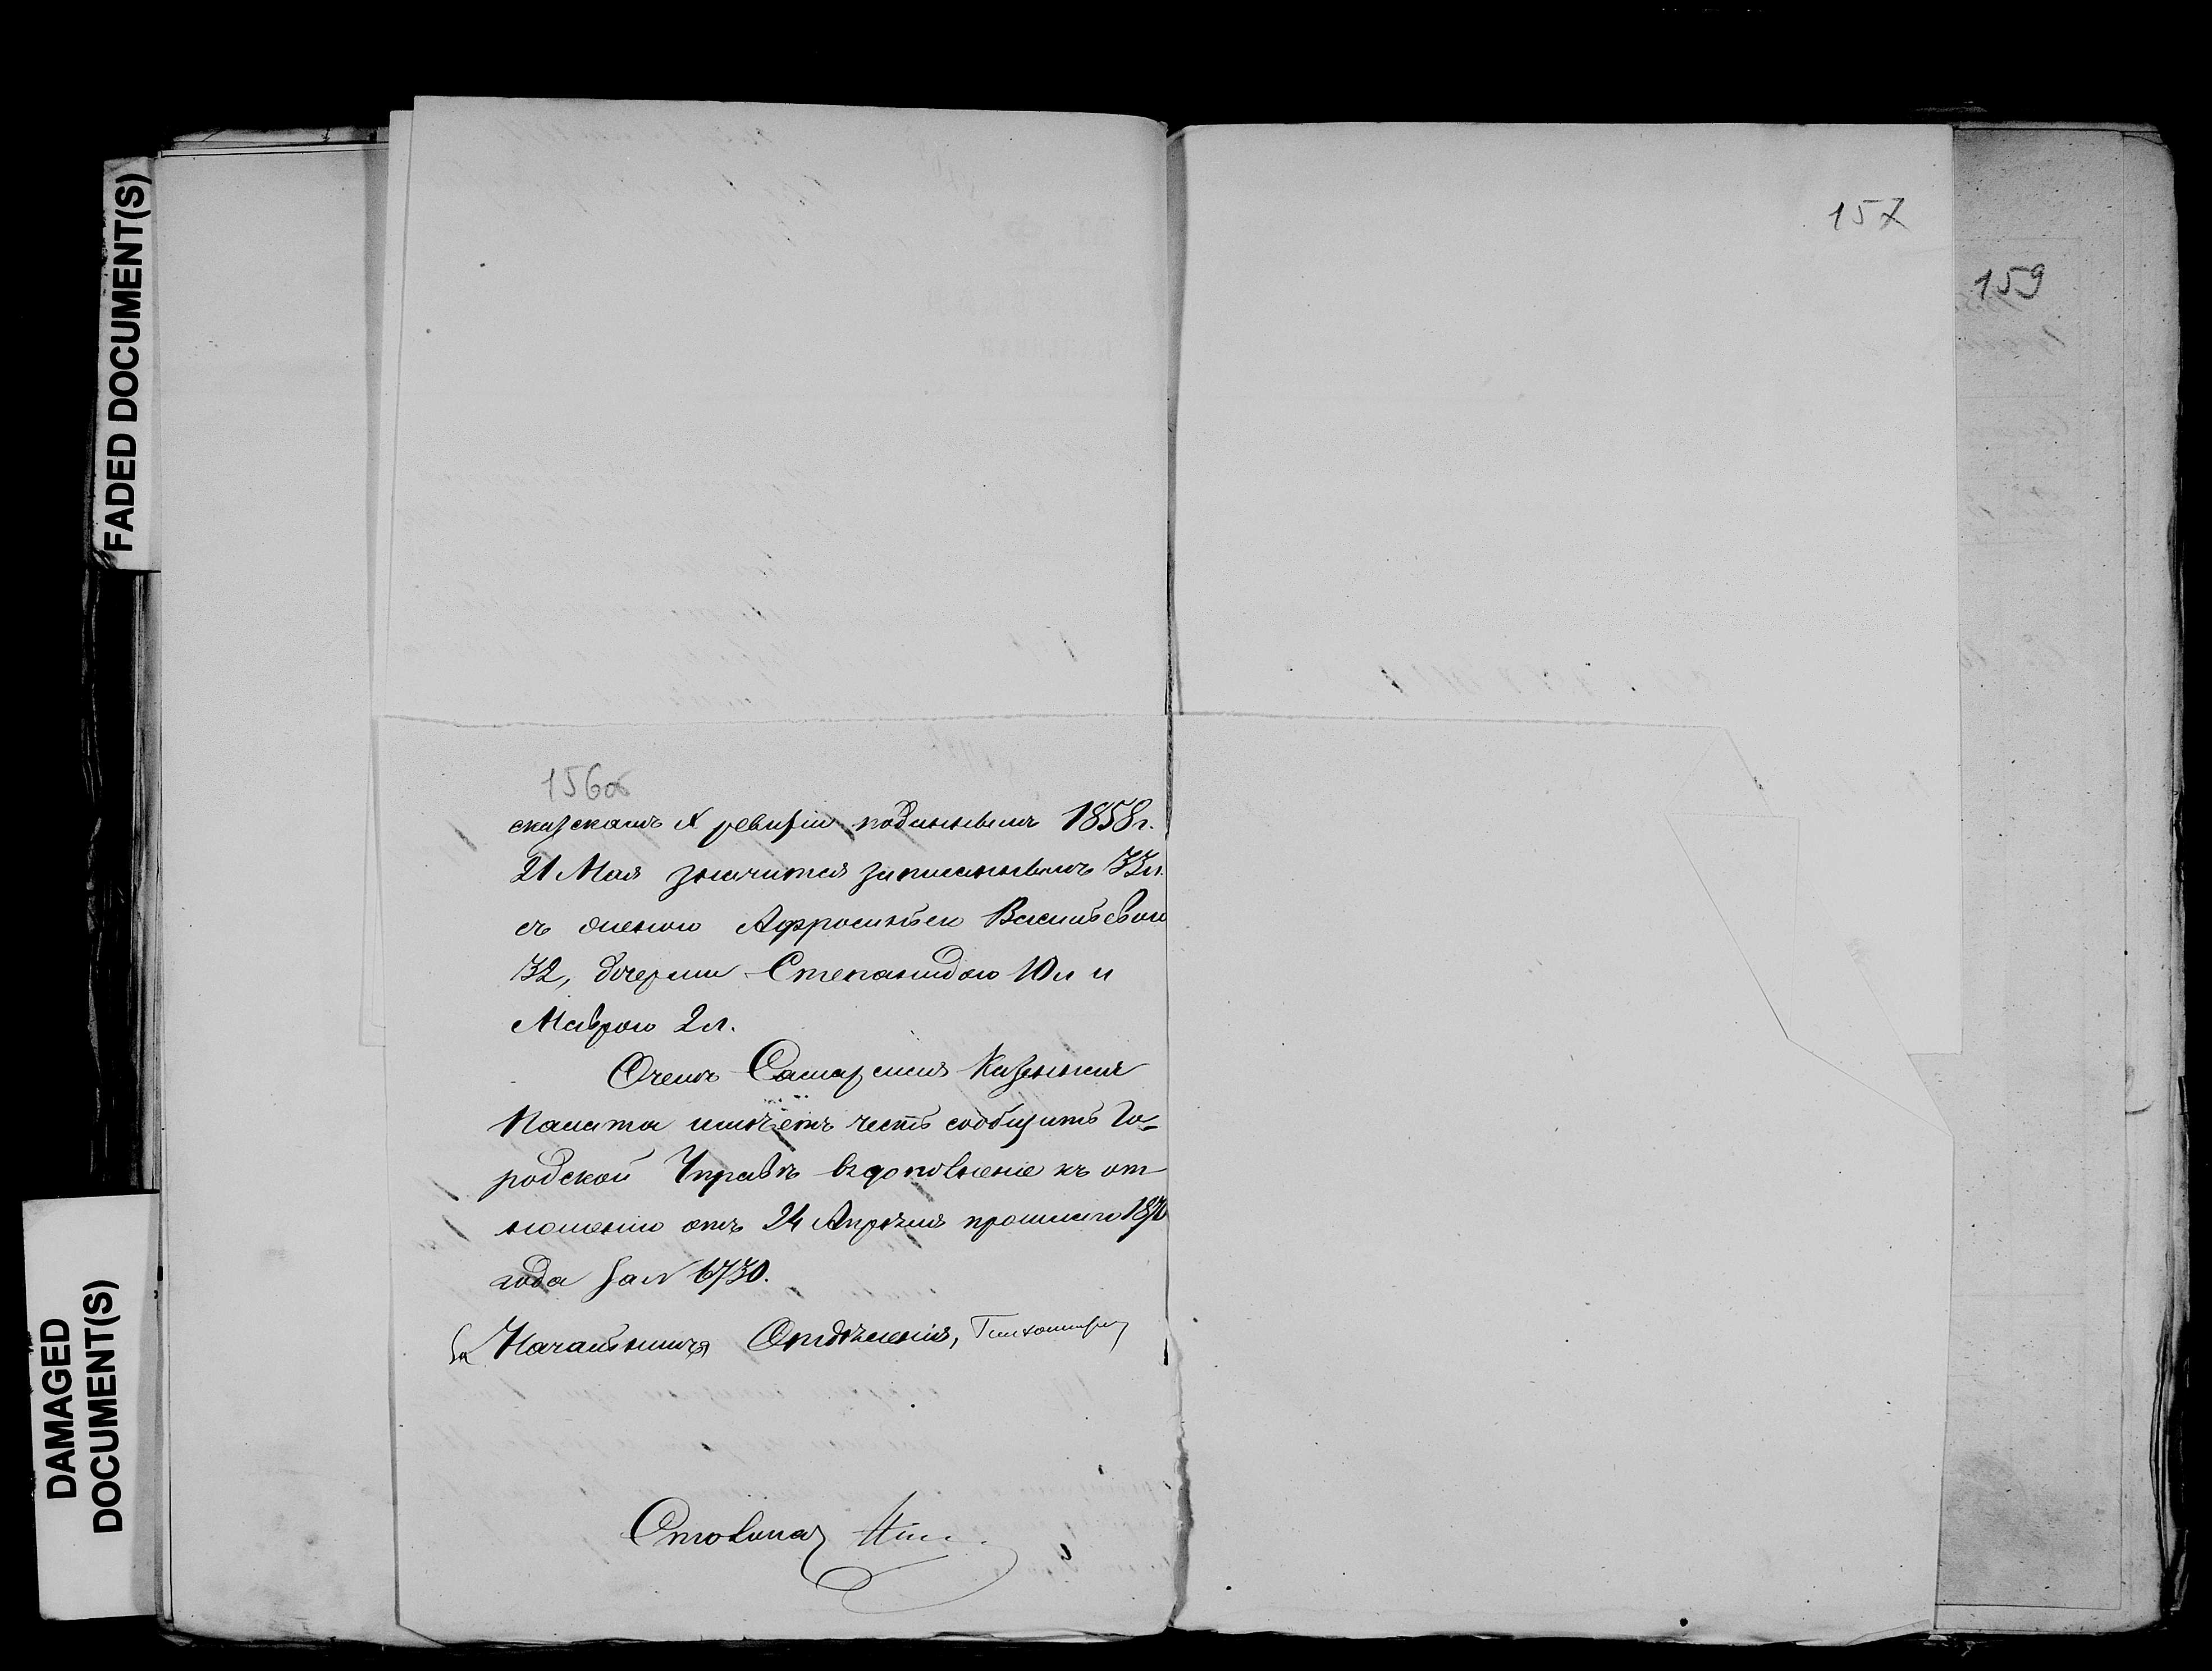 FADED DOCUMENT(S)
DAMAGED
DOCUMENT(S)
157
159
156об
сказкамъ X ревизіи поданнымъ 1858 г.
21 Мая значится записаннымъ 33 л.
съ женою Афросиньею Васильевою
32, дочерми Степанидою 10 л и
Маврою 2 л.
О чемъ Самарская Казенная
Палата имѣетъ честь сообщить Го-
родской Управѣ въ дополненіе къ от-
ношенію отъ 24 Апрѣля прошлаго 187
года за N 6730.
За Начальника Отдѣленія,
Столонач